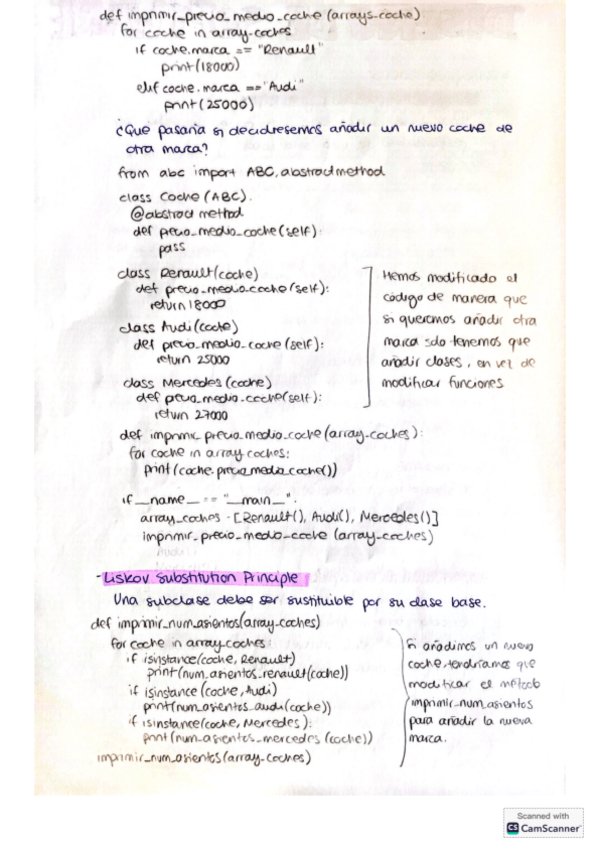 def imprimir_precio_medio_coche (arrays-coche)
for coche in array-coches
if coche.marca == "Renault"
print(18000)
elif coche.marca == "Audi"
print(25000)
¿Que pasaria si decidiesemos añadir un nuevo coche de
otra marca?
from abc import ABC, abstractmethod
class Coche (ABC).
@abstract method
def precio_medio_coche (self):
pass
class Renault(coche)
def precio_medio_coche (self):
return 18000
class Audi (coche)
def precio_medio_coche (self):
return 25000
class Mercedes (coche)
def precio_medio_coche(self):
return 27000
Hemos modificado el
código de manera que
si queremos añadir otra
marca solo tenemos que
añadir clases, en vez de
modificar funciones
def imprimir_precio_medio_coche (array-coches):
for coche in array coches:
print (coche.precio_medio_coche())
if __name__ == "__main__".
array_coches = [Renault(), Audi(), Mercedes()]
imprimir_precio_medio_coche (array_coches)
-Liskov Substitution Principle
Una subclase debe ser sustituible por su clase base.
def imprimir_num_asientos(array-coches)
for coche in array coches:
if isinstance(coche, Renault)
print(num_asientos_renault(coche))
if isinstance (coche, Audi)
print(num_asientos_audi(coche))
if isinstance(coche, Mercedes):
print(num_asientos_mercedes (coche))
imprimir_num_asientos(array-coches)
Si añadimos un nuevo
coche, tendríamos que
modificar el método
imprimir_num_asientos
para añadir la nueva
marca.
Scanned with
CS CamScanner